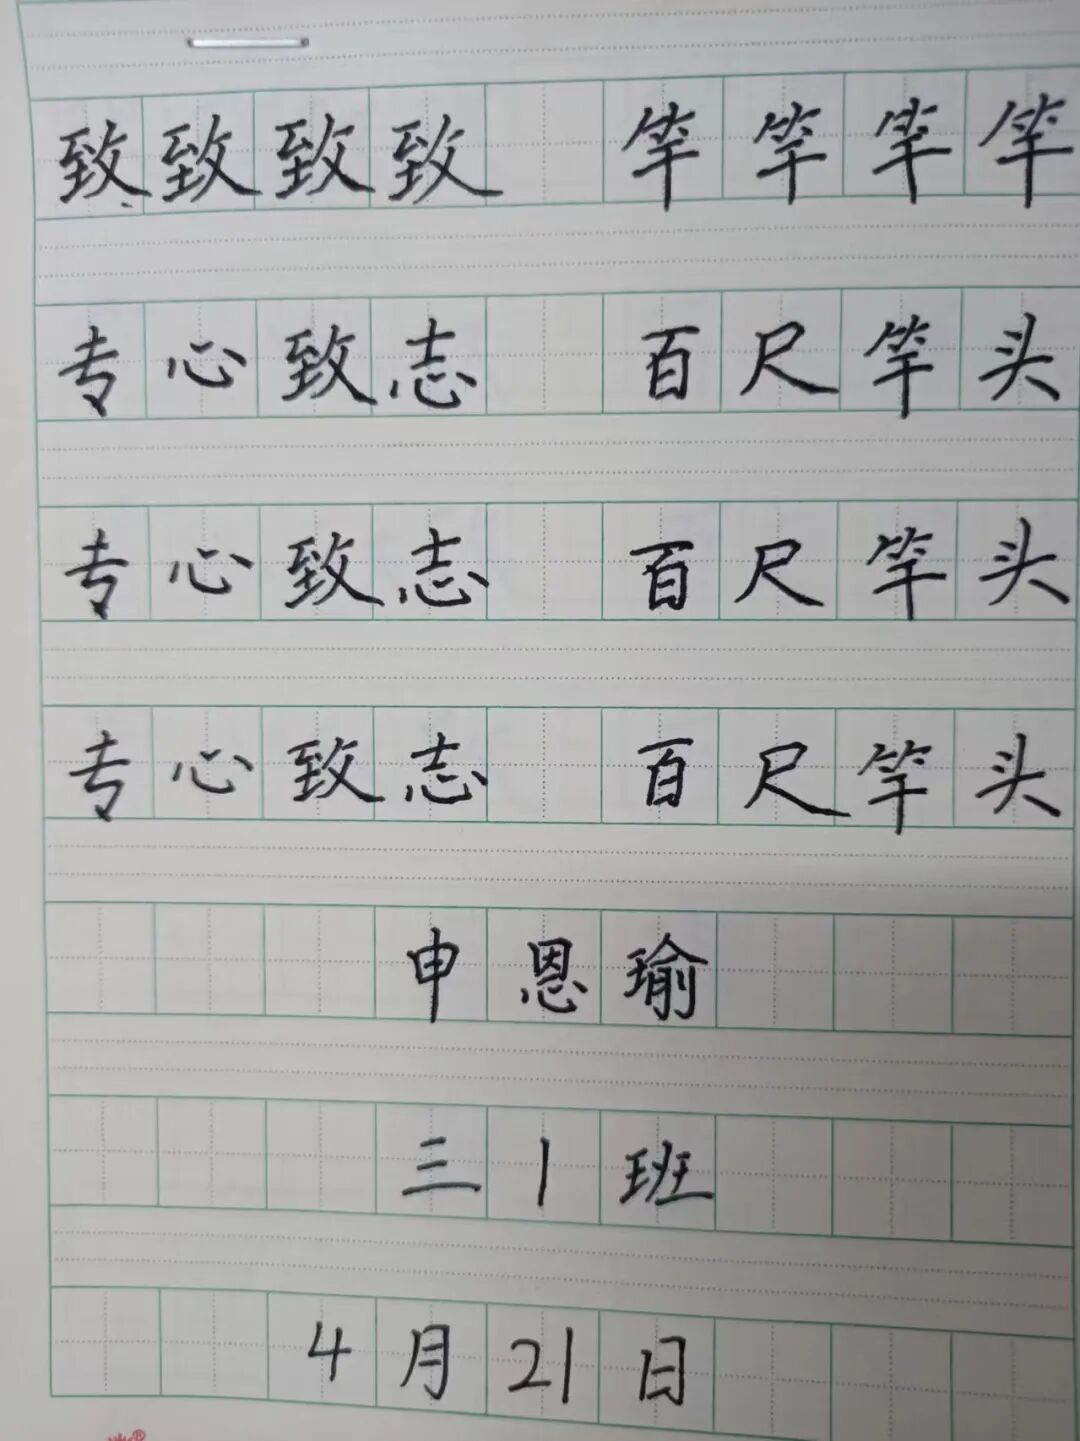 致致致致 竿竿竿竿
专心致志 百尺竿头
专心致志 百尺竿头
专心致志 百尺竿头
申恩瑜
三1班
4月21日